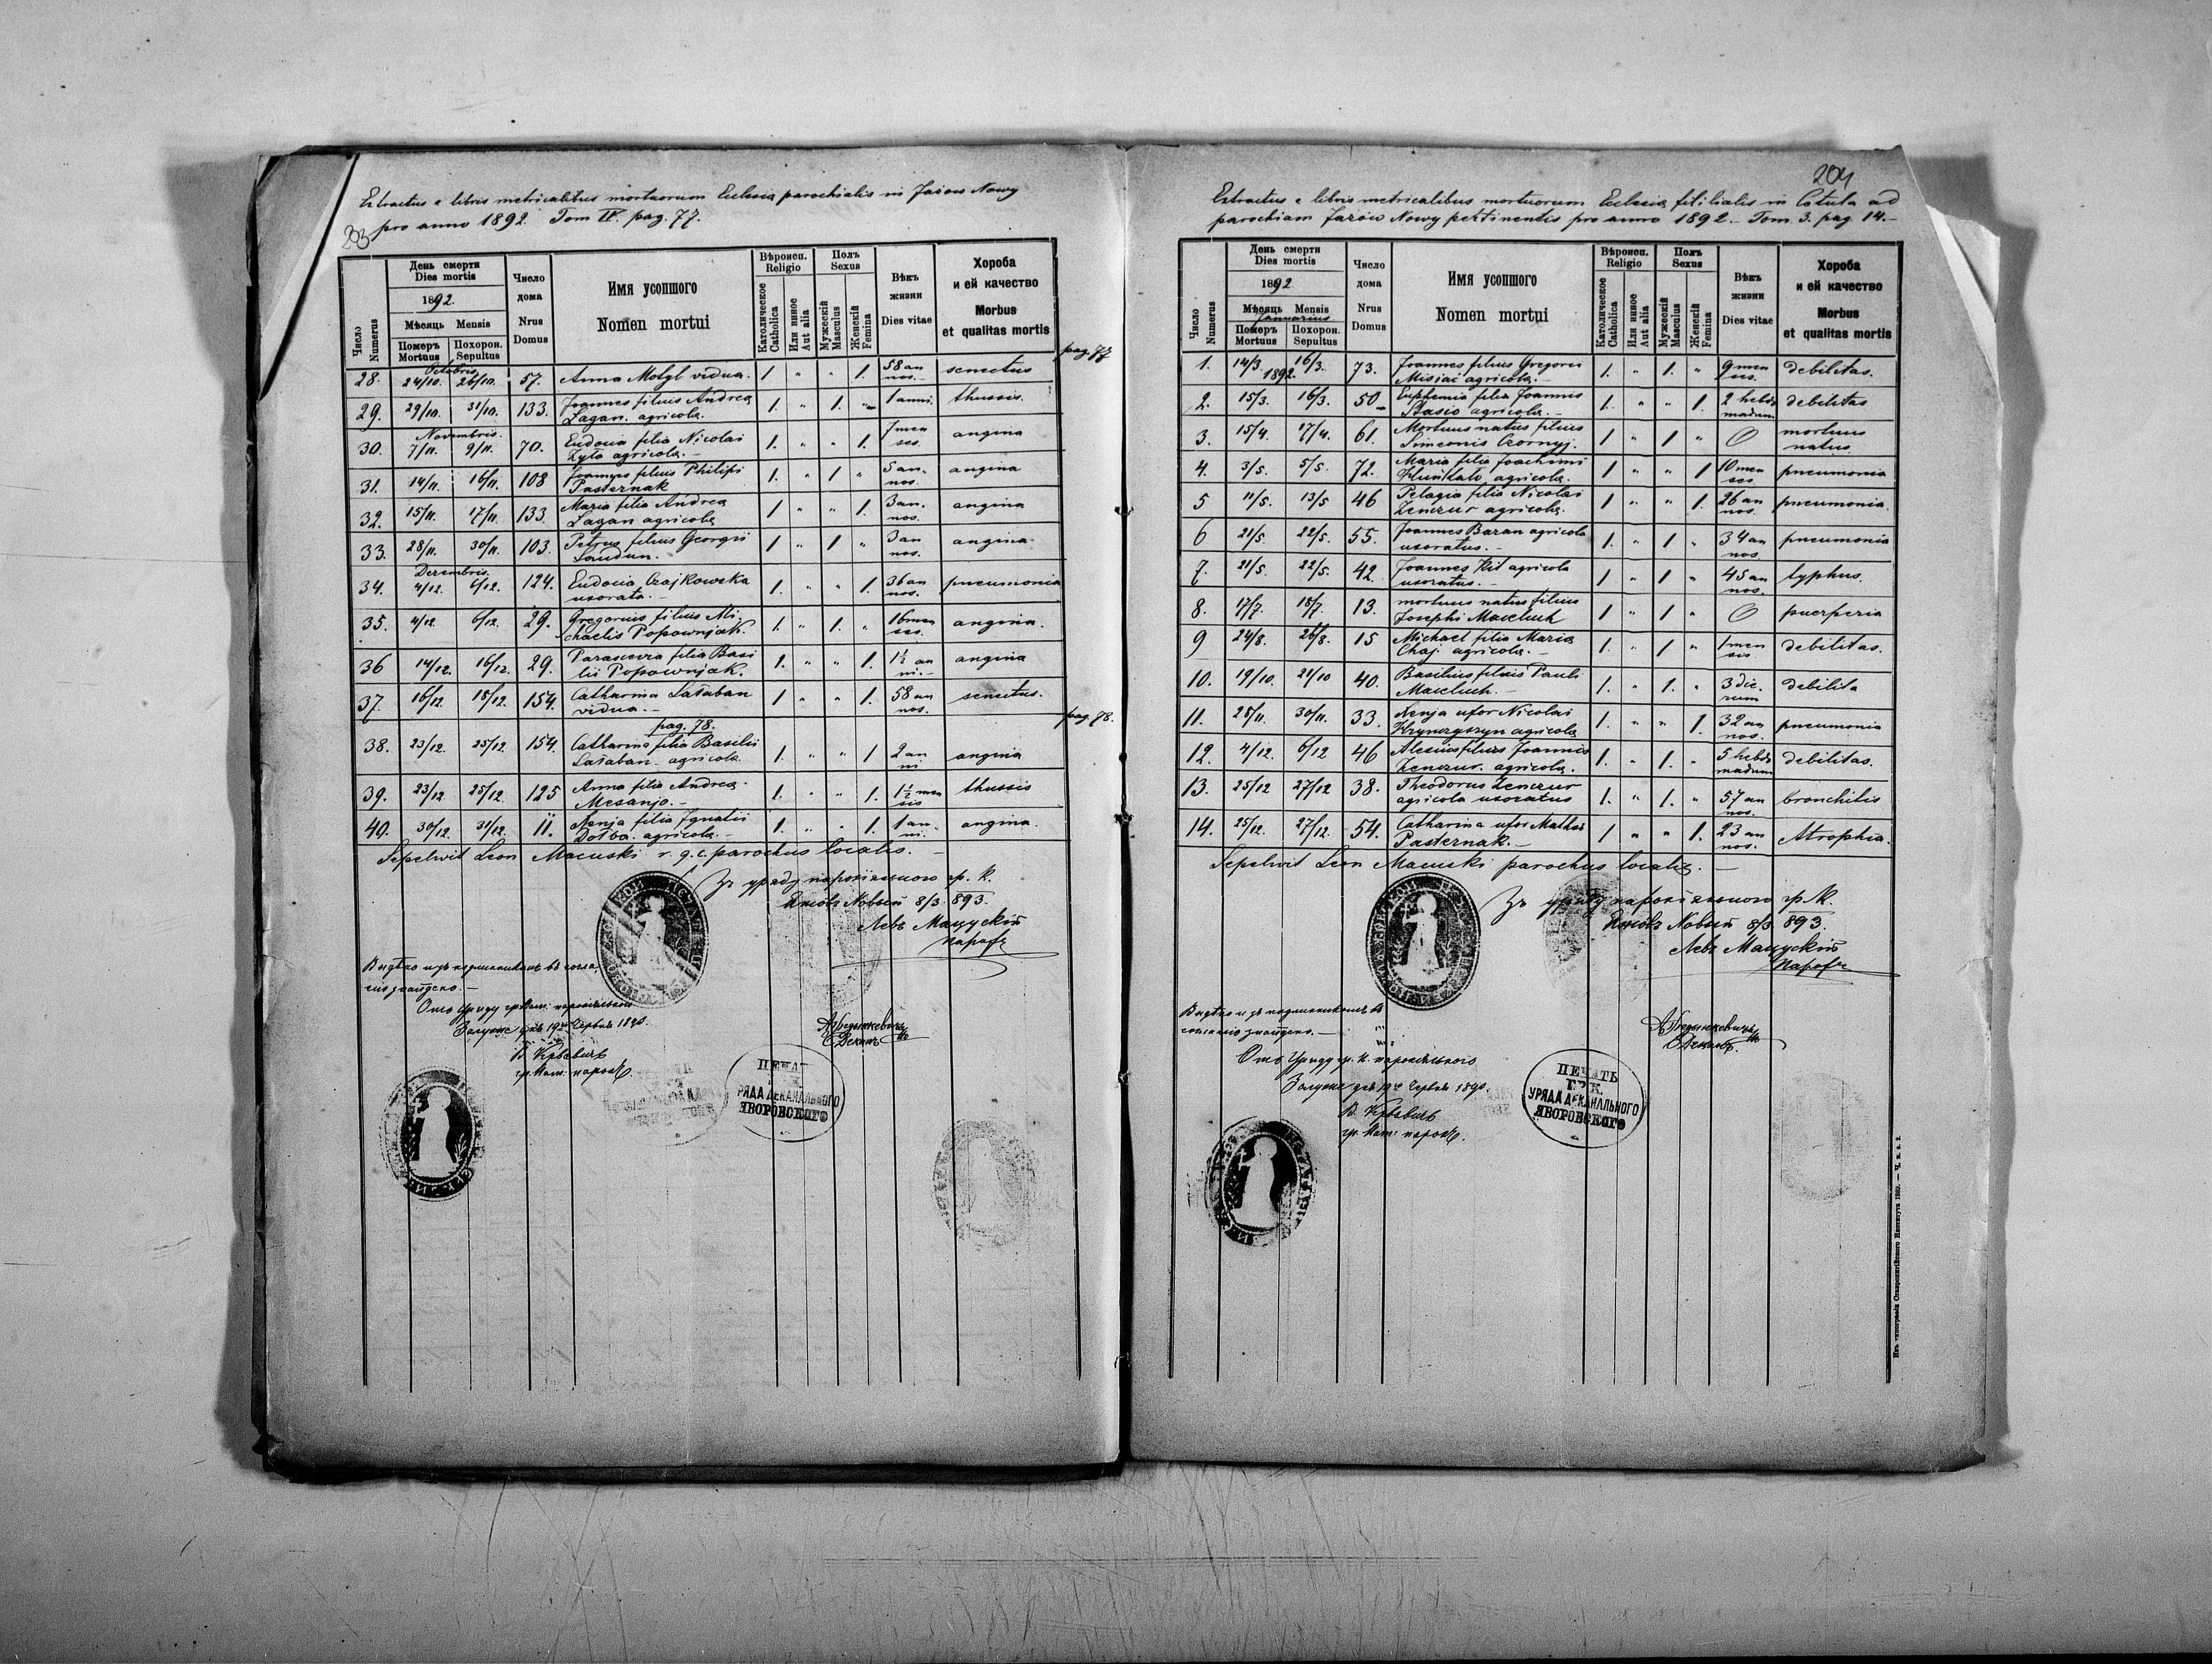 Extractus e libris metricalibus mortuorum Ecclesiæ parochialis in Jazow Nowy
pro anno 1892. Tom IV. pag. 77.
203
Число Numerus | День смерти Dies mortis 1892 Мѣсяць Mensis Померъ Mortuus | Похорон. Sepultus | Число дома Nrus Domus | Имя усопшого Nomen mortui | Вѣроисп. Religio Католическое Catholica | Или инное Aut alia | Полъ Sexus Мужескій Masculus | Женскій Femina | Вѣкъ жизни Dies vitae | Хороба и ей качество Morbus et qualitas mortis
pag. 77
Octobris
28. | 24/10. | 26/10. | 57. | Anna Motyl vidua. | 1. | " | " | 1. | 58 an nos. | senectus
29. | 29/10. | 31/10. | 133. | Joannes filius Andreæ Łagan. agricolæ. | 1. | " | 1. | " | 1 anni. | thussis.
Novembris.
30. | 7/11. | 9/11. | 70. | Eudocia filia Nicolai Zyla agricolæ. | 1. | " | " | 1. | 7 men ses. | angina
31. | 14/11. | 16/11. | 108 | Joannes filius Philipi Pasternak | 1. | " | 1 | " | 5 an. nos. | angina
32. | 15/11. | 17/11. | 133. | Maria filia Andreæ Łagan agricolæ | 1 | " | " | 1. | 3 an. nos. | angina
33. | 28/11. | 30/11. | 103. | Petrus filius Georgii | 1 | " | 1 | " | 3 an nos. | angina.
Decembris.
34. | 4/12. | 6/12. | 124. | Eudocia Czajkowska uxorata. | 1. | " | " | 1. | 36 an nos. | pneumonia
35. | 4/12 | 6/12. | 29. | Gregorius filius Michaelis Popownjak. | 1. | " | 1. | " | 16 men ses. | angina.
36 | 14/12. | 16/12. | 29. | Parascevia filia Basilii Popownjak. | 1. | " | " | 1. | 1½ an ni. | angina
37. | 16/12 | 18/12. | 154. | Catharina Łataban vidua. | 1 | " | " | 1. | 58 an nos. | senectus.
pag. 78.
pag. 78.
38. | 23/12. | 25/12. | 154. | Catharina filia Basilii Łataban agricolæ. | 1. | " | " | 1 | 2 an ni | angina
39. | 23/12 | 25/12. | 125 | Anna filia Andreæ Mesanjo. | 1. | " | " | 1. | 1½ men sis | thussis
40. | 30/12. | 31/12. | 11. | Xenja filia Ignatii Dotba. agricolæ. | 1. | " | " | 1. | 1 an ni. | angina.
Sepelivit Leon Macuski r. g. c. parochus localis.
Зъ уряду парохіяльного гр. к.
Язовъ Новый 8/3 893.
Левъ Мацускій
парохъ
Отъ Уряду
Залуже дня 19 Червня 1890.
Деканъ
ПЕЧАТЬ
РЯДА ДЕКАНАЛЬНОГО
ЯВОРОВСКОГО
204
Extractus e libris metricalibus mortuorum Ecclesiæ filialis in Cetula ad
parochiam Jazów Nowy pertinentis pro anno 1892. Tom. 3. pag. 14.
Число Numerus | День смерти Dies mortis 1892 Мѣсяць Mensis Januarius Померъ Mortuus | Похорон. Sepultus | Число дома Nrus Domus | Имя усопшого Nomen mortui | Вѣроисп. Religio Католическое Catholica | Или инное Aut alia | Полъ Sexus Мужескій Masculus | Женскій Femina | Вѣкъ жизни Dies vitae | Хороба и ей качество Morbus et qualitas mortis
1. | 14/3. 1892. | 16/3. | 73. | Joannes filius Gregorii Misiać agricolæ. | 1. | " | 1. | " | 9 men ses. | debilitas.
2. | 15/3. | 16/3. | 50 | Euphemia filia Joannis Stasio agricolæ. | 1. | " | " | 1. | 2 hebdo madum | debilitas
3. | 15/4. | 17/4. | 61. | Mortuus natus filius Simeonis Czornyj. | 1 | " | 1 | " | 0 | mortuus natus
4. | 3/5. | 5/5. | 72. | Maria filia Joachimi agricolæ. | 1 | " | " | 1 | 10 men ses | pneumonia
5 | 11/5. | 13/5 | 46 | Pelagia filia Nicolai Zenczur agricolæ. | 1 | " | " | 1. | 26 an nos. | pneumonia.
6 | 21/5. | 22/5. | 55. | Joannes Baran agricola uxoratus. | 1. | " | 1 | " | 34 an nos. | pneumonia
7. | 21/5. | 22/5. | 42. | Joannes Kit agricola uxoratus. | 1 | " | 1 | " | 45 an nos. | typhus.
8. | 17/7. | 18/7. | 13. | mortuus natus filius Josephi Maselucch | 1 | " | 1 | " | 0 | puerperia
9 | 24/8. | 26/8. | 15 | Michael filia Mariæ Chaj agricolæ. | 1. | " | 1 | " | 1 men sis | debilitas.
10. | 19/10. | 21/10 | 40. | Basilius filius Pauli | 1. | " | 1. | " | 3 die. rum | debilita
11. | 28/11. | 30/11. | 33. | Xenja uxor Nicolai agricolæ | 1. | " | " | 1. | 32 an nos. | pneumonia
12. | 4/12. | 6/12 | 46 | Alexius filius Joannis Zenczur. agricolæ. | 1. | " | 1. | " | 5 hebdo madum | debilitas.
13. | 25/12 | 27/12 | 38. | Theodorus Zenczur agricola uxoratus | 1. | " | 1. | " | 57 an nos. | bronchitis
14. | 25/12. | 27/12. | 54. | Catharina uxor Mathei Pasternak. | 1 | " | " | 1. | 23 an nos. | Atrophia.
Sepelivit Leon Macuski parochus localis.
Зъ уряду парохіяльного гр. к.
Язовъ Новый 8/3 893.
Левъ Мацускій
парохъ
Отъ Уряду гр. к. парохіяльного
Залуже дня 19 Червня 1890.
Деканъ.
ПЕЧАТЬ
Г. К.
УРЯДА ДЕКАНАЛЬНОГО
ЯВОРОВСКОГО
Изъ типографіи Ставропигійского Института 1889.